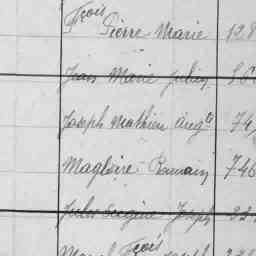 Fçois
Pierre Marie 128
Jean Marie Julien
Joseph Mathieu Aug^te 74
Magloire Romain 746
Jules Eugène Joseph
Fçois
Joseph